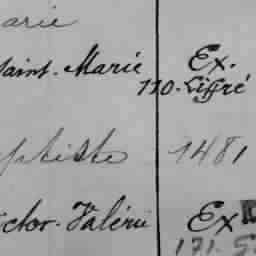 arie
saint. Marie Ex.
110. Ligré
ptiste 1481
ictor. Valérie Ex
171.